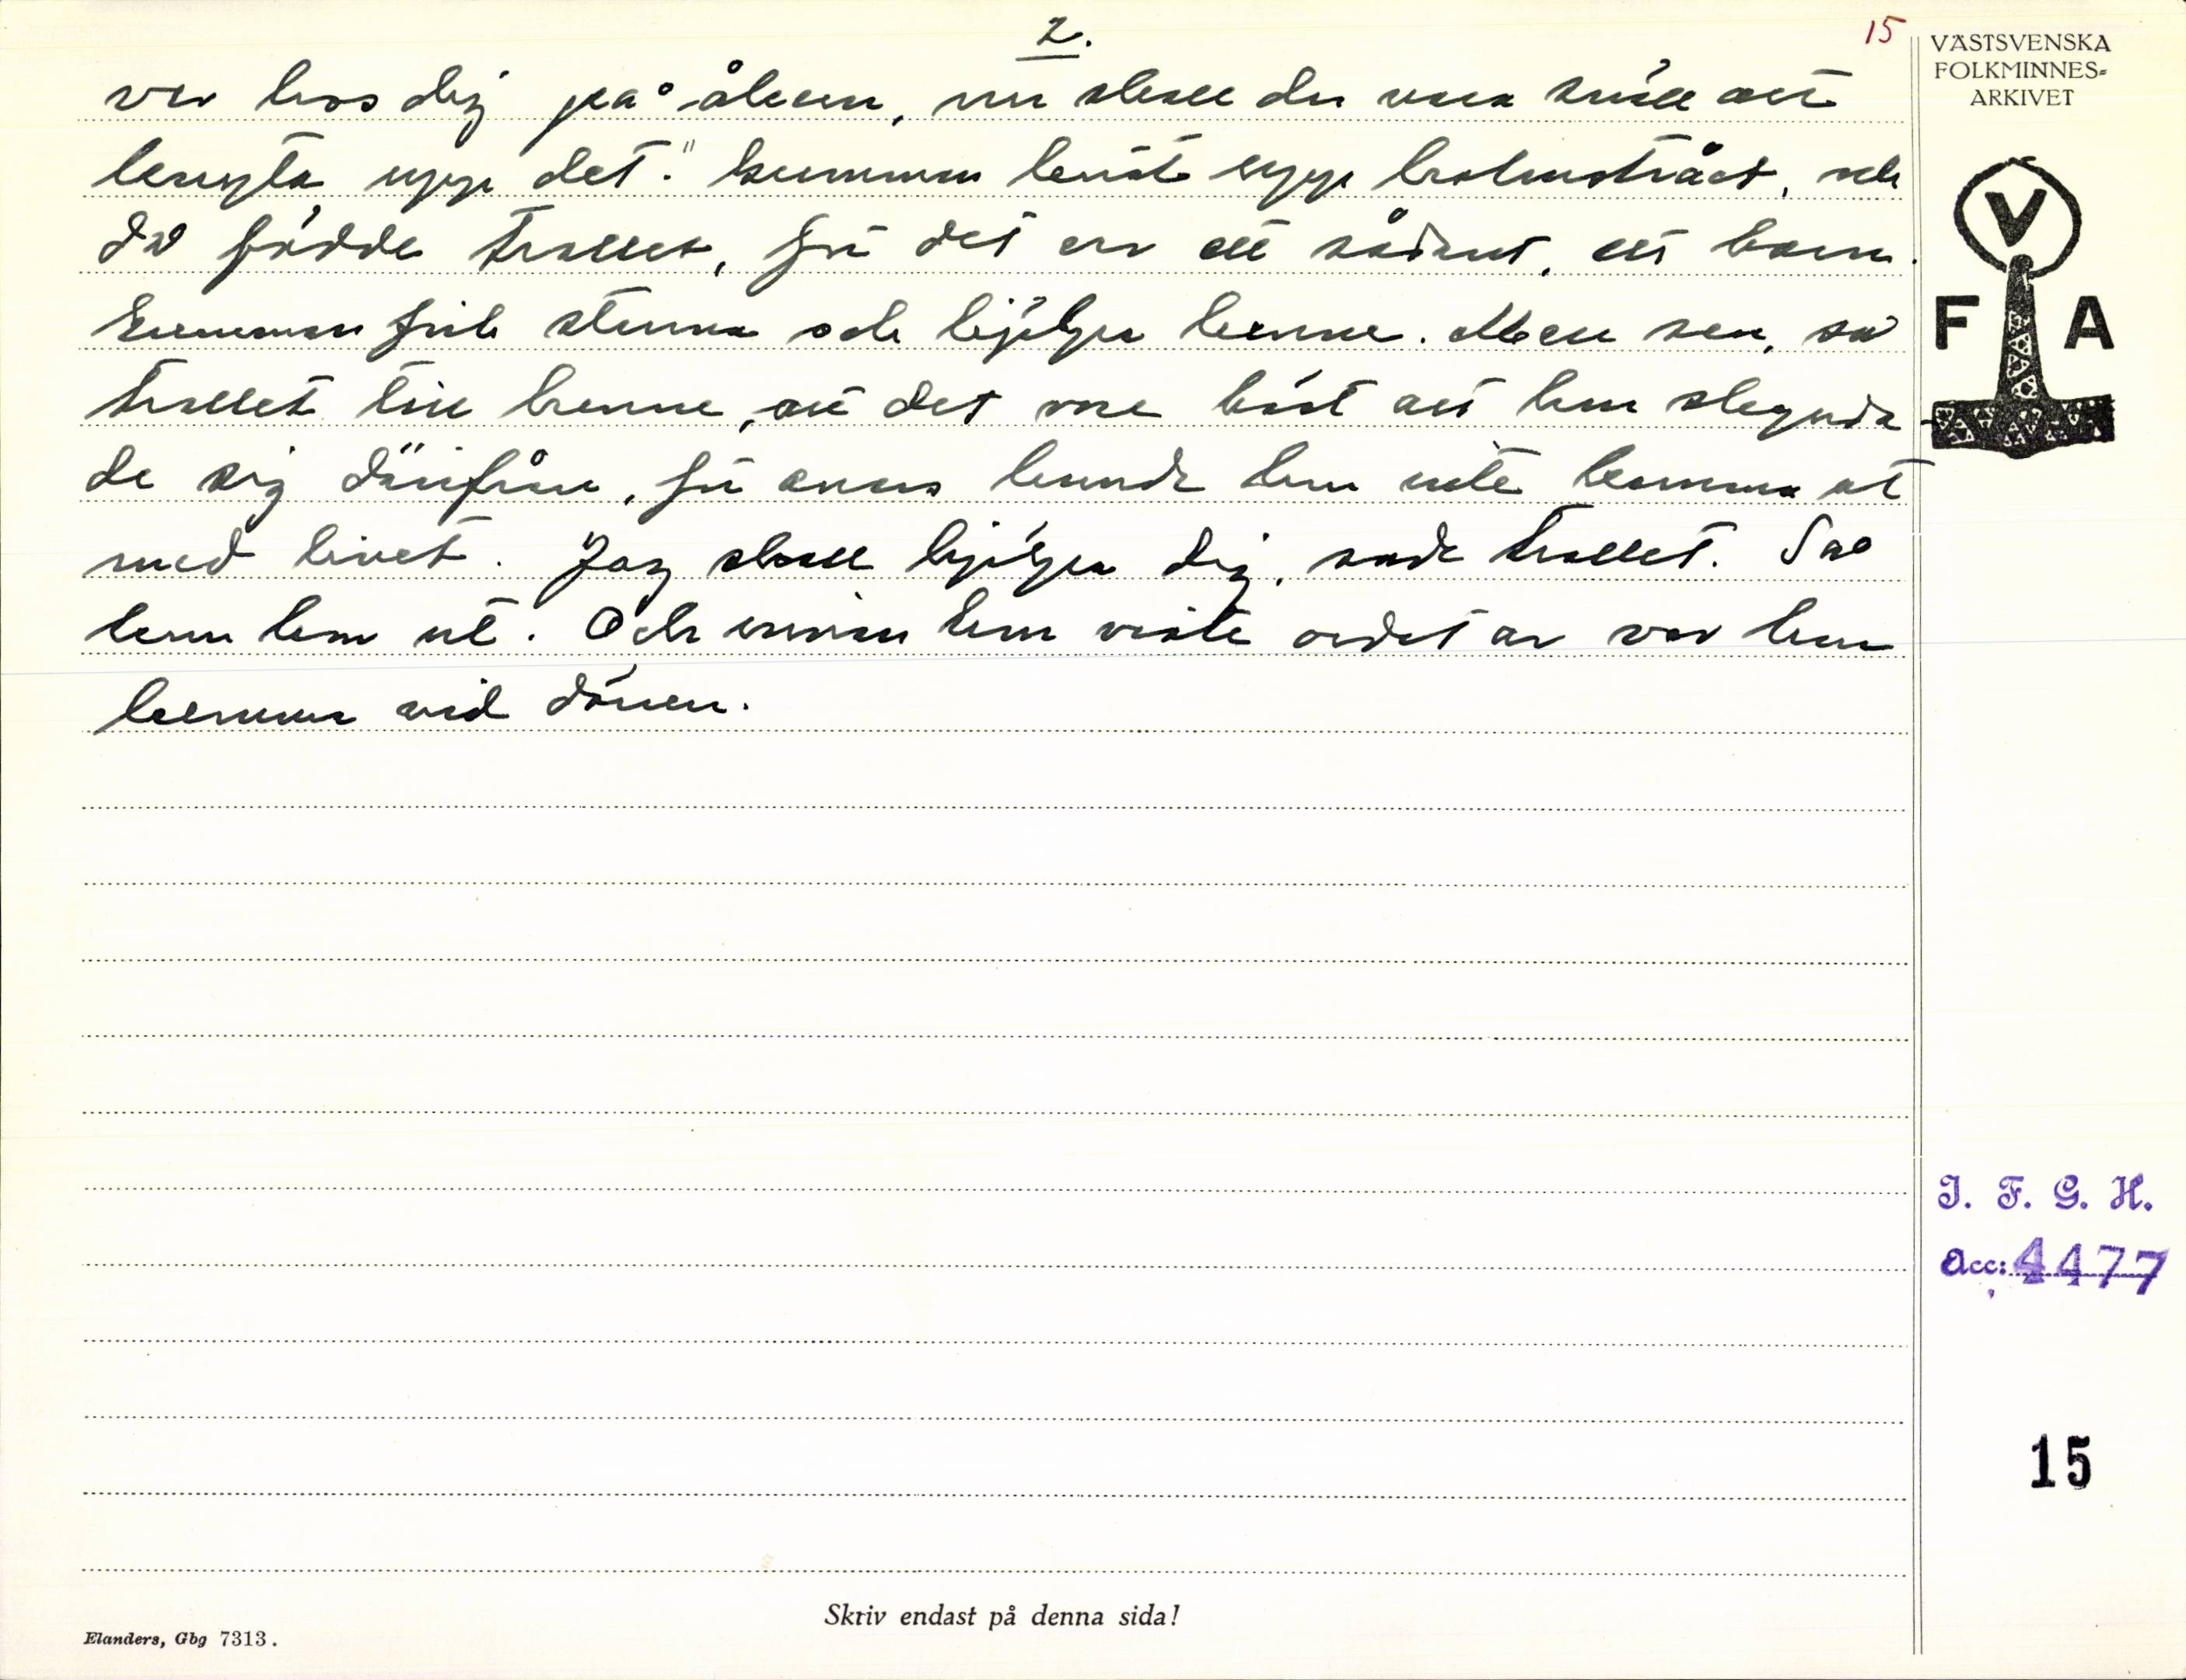 2.
15
var hos dig på åkern, nu skall du vara snäll att
knyta upp det." Gumman knöt upp halmstrået, och
då födde trollet, för det var ett sådant, ett barn.
Gumman fick stanna och hjälpa henne. Men sen, sa
trollet till henne, att det vore bäst att hon skynda-
de sig därifrån, för annars kunde hon inte komma ut
med livet. Jag skall hjälpa dig, sade trollet. Så
kom hon ut. Och innan hon visste ordet av var hon
hemma vid dörren.
VÄSTSVENSKA
FOLKMINNES-
ARKIVET
V
F A
I. F. G. H.
Acc: 4477
15
Skriv endast på denna sida!
Elanders, Gbg 7313.